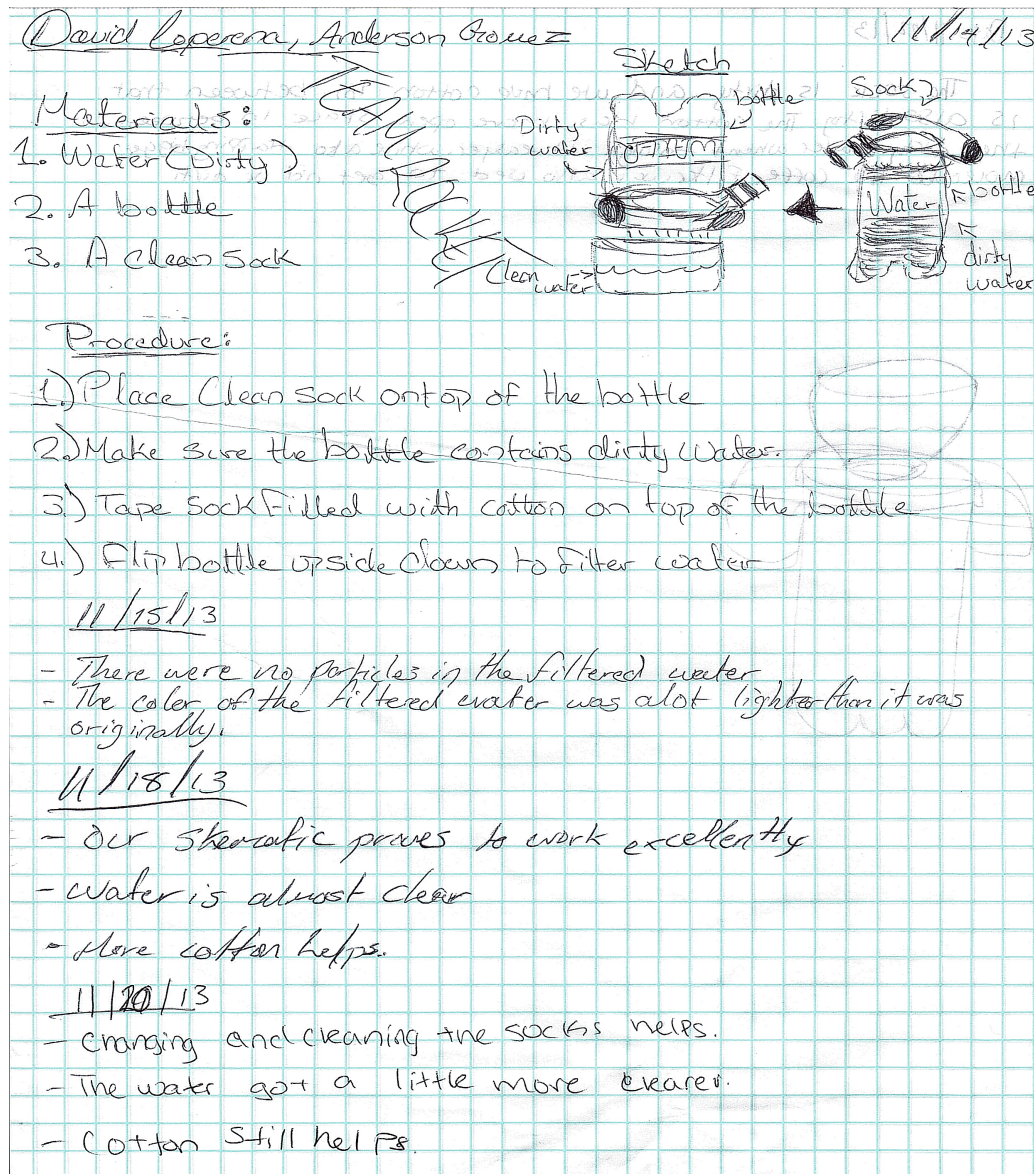 David Loperena, Anderson Gomez
11/14/13
Sketch
Materials:
1. Water (Dirty)
2. A bottle
3. A Clean Sock
Dirty water
bottle
WATER
Clean water
Sock
Water
bottle
dirty water
Procedure:
1.) Place Clean sock ontop of the bottle
2.) Make sure the bottle contains dirty water.
3.) Tape sock filled with cotton on top of the bottle
4.) Flip bottle upside down to filter water
11/15/13
- There were no particles in the filtered water
- The color of the filtered water was alot lighter than it was
originally.
11/18/13
- Our skematic proves to work excellently
- water is almost clear
- More cotton helps.
11/20/13
- Changing and cleaning the socks helps.
- The water got a little more clearer.
- Cotton still helps.